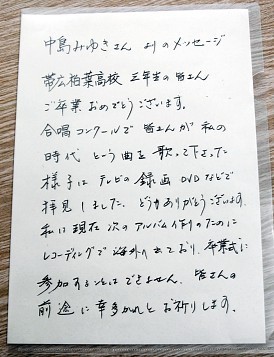 中島みゆきさん よりのメッセージ
帯広柏葉高校 三年生の皆さん
ご卒業おめでとうございます。
合唱コンクールで 皆さんが 私の
時代 という曲を 歌って下さった
様子は テレビの 録画 DVDなどで
拝見しました、どうもありがとうございます。
私は現在 次のアルバム作りのために
レコーディングで 海外へ出ており、卒業式に
参加することはできません、皆さんの
前途に幸多かれとお祈りします。